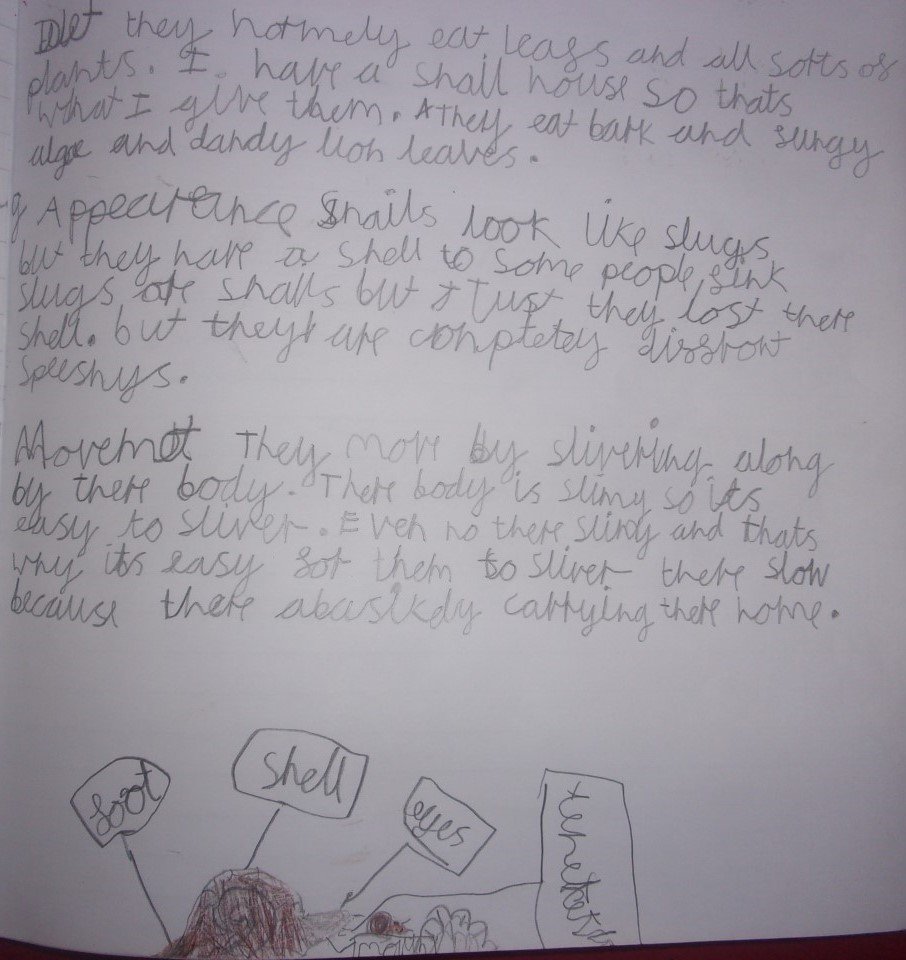 Diet they normely eat leafs and all sorts of
plants. I have a snail house so thats
what I give them. They eat bark and fungy
algae and dandy lion leaves.
Appearance Snails look like slugs
but they have a shell to some people sink
slugs are snails but just they lost there
shell. but they are completey
speeshys.
Movemnt They move by slivering along
by there body. There body is slimy so its
easy to sliver. Even no there slimy and thats
why its easy for them to sliver there slow
because there abasikdy carrying there home.
foot
shell
eyes